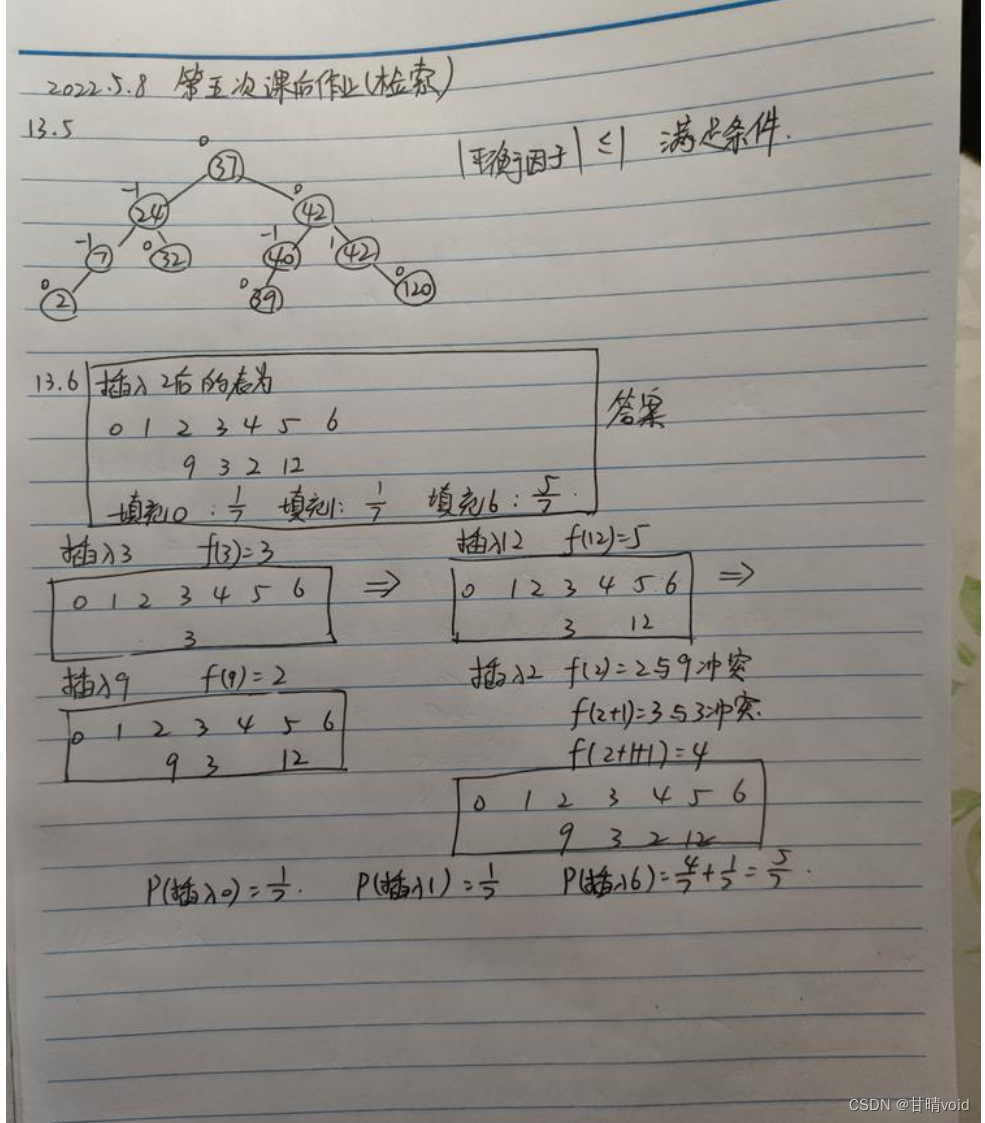 2022.5.8 第五次课后作业(检索)
13.5
|平衡因子| ≤1 满足条件.
0
37
-1 0
24 42
-1 0 -1 1
7 32 40 42
0 0 0
2 39 120
13.6 插入2后的表为
答案
0 1 2 3 4 5 6
9 3 2 12
填充0 : 1/7 填充1: 1/7 填充6 : 5/7.
插入3 f(3)=3 插入12 f(12)=5
0 1 2 3 4 5 6 ⇒ 0 1 2 3 4 5 6 ⇒
3 3 12
插入9 f(9)=2 插入2 f(2)=2与9冲突
f(2+1)=3与3冲突.
0 1 2 3 4 5 6
9 3 12
f(2+1+1)=4
0 1 2 3 4 5 6
9 3 2 12
P(插入0)=1/7. P(插入1)=1/7 P(插入6)=4/7+1/7=5/7.
CSDN @甘晴void